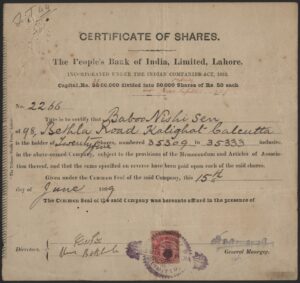 CERTIFICATE OF SHARES.
The People's Bank of India, Limited, Lahore.
INCORPORATED UNDER THE INDIAN COMPANIES ACT, 1882.
Capital, Rs. divided into 50000 Shares of Rs 50 each
No. 2266
This is to certify that Baboo Nishi Sen
of 98, Road Kalighat Calcutta
is the holder of Twenty five Shares, numbered 35309 to 35333 inclusive,
in the above-named Company, subject to the provisions of the Memorandum and Articles of Association
thereof, and that the same specified on reverse have been paid upon each of the said shares.
Given under the Common Seal of the said Company, this 15th
day of June 1909
The Common Seal of the said Company was hereunto affixed in the presence of
Directors.
General Manager.